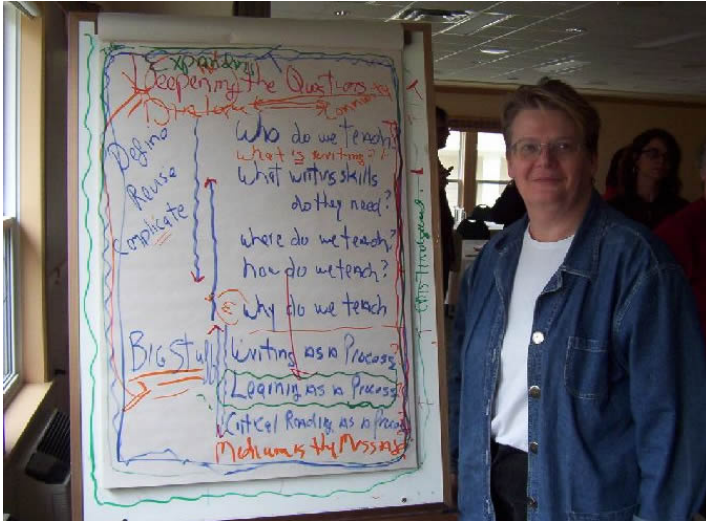 Expanding
Deepening the Questions
Define
Reuse
Complicate
Who do we teach?
What is writing?
What writing skills
do they need?
where do we teach?
how do we teach?
& Why do we teach
BIG Stuff
Writing as a Process?
Learning as a Process?
Critical Reading as a Process?
Medium is the Message